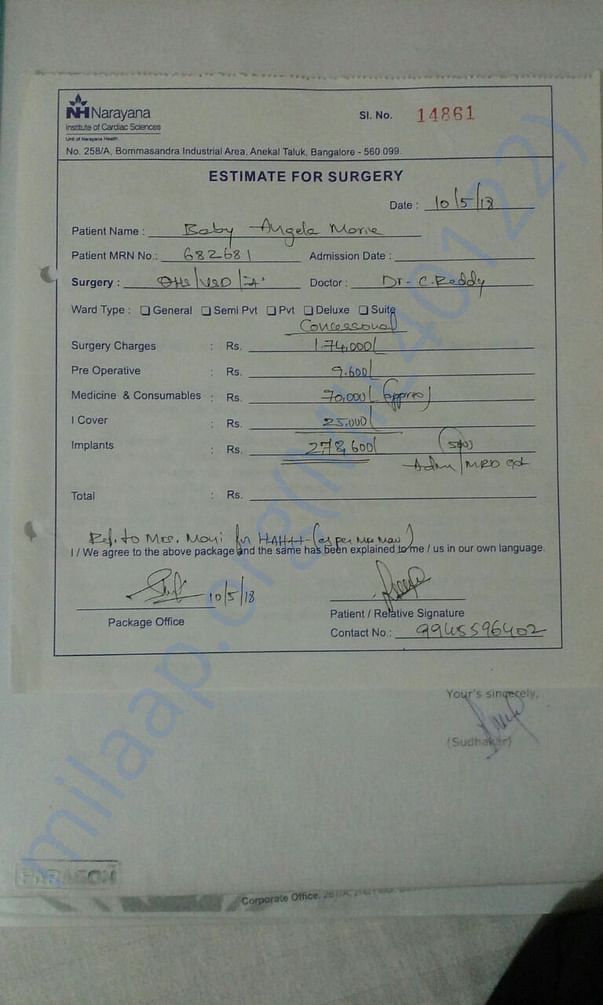 NH Narayana
Institute of Cardiac Sciences
Unit of Narayana Health
Sl. No. 14861
No. 258/A, Bommasandra Industrial Area, Anekal Taluk, Bangalore - 560 099.
ESTIMATE FOR SURGERY
Date : 10/5/18
Patient Name : Baby Angela Marie
Patient MRN No.: 682681 Admission Date :
Surgery : OHS/VSD/ Doctor : Dr. C. Reddy
Ward Type : General Semi Pvt Pvt Deluxe Suite
Concessonal
Surgery Charges : Rs. 1.74,000/
Pre Operative : Rs. 9.600/
Medicine & Consumables : Rs. 70,000/ (approx)
I Cover : Rs. 25,000/
Implants : Rs. 278,600/ (500)
Adm/MRD
Total : Rs.
Ref. to Mrs.
I / We agree to the above package and the same has been explained to me / us in our own language.
10/5/18
Package Office
Patient / Relative Signature
Contact No.: 9945596402
Your's sincerely,
(Sudhakar)
milaap.org
PARAGON
Corporate Office